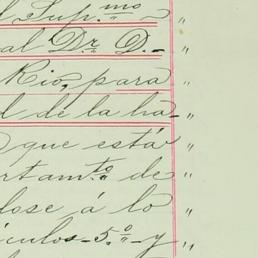 l Sup.mo „
al Dr. D.- „
Rio, para „
l de la ha- „
que está „
rtam.to de „
dose á lo „
ículos-5.o-y „